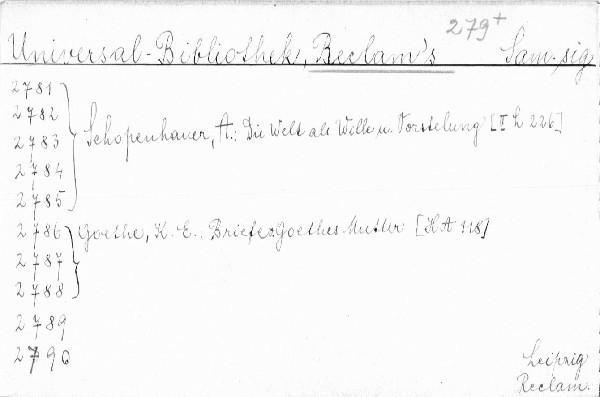 279+
Universal-Bibliothek, Reclam's Sam. sig.
2781
2782
2783 Schopenhauer, A.: Die Welt als Wille u. Vorstellung [II L 226]
2784
2785
2786 Goethe, K. E.: Briefe Goethes Mutter [HA 118]
2787
2788
2789
2790
Leipzig
Reclam.